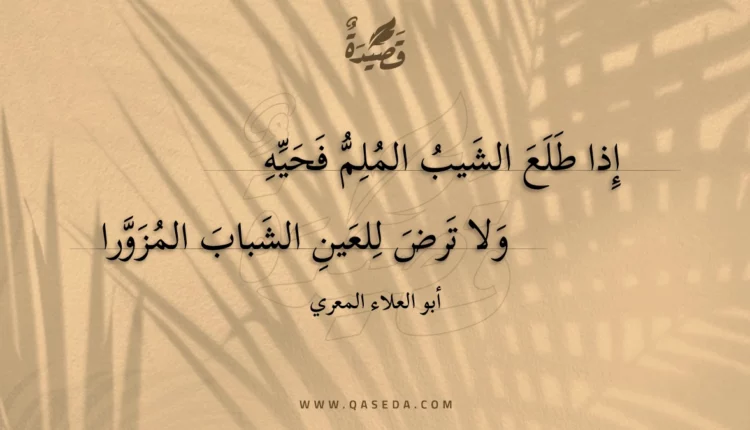 قَصِيْدَةٌ
إِذا طَلَعَ الشَيبُ المُلِمُّ فَحَيِّهِ
وَلا تَرضَ لِلعَينِ الشَبابَ المُزَوَّرا
أبو العلاء المعري
WWW.QASEDA.COM